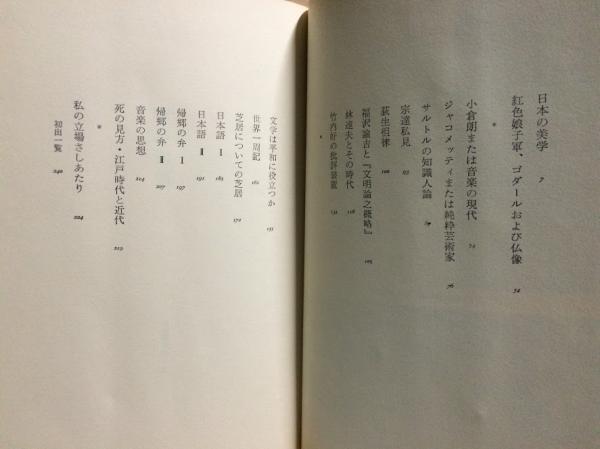 日本の美学 7
紅色娘子軍、ゴダールおよび仏像 52
*
小倉朗または音楽の現代 72
ジャコメッティまたは純粋芸術家 76
サルトルの知識人論
宗達私見 93
荻生徂徠 100
福沢諭吉と『文明論之概略』 105
林達夫とその時代 118
竹内好の批評装置 131
*
文学は平和に役立つか 155
世界一周記 162
芝居についての芝居 172
日本語 I 185
日本語 II 191
帰郷の弁 I 197
帰郷の弁 II 207
音楽の思想 204
死の見方・江戸時代と近代 219
*
私の立場さしあたり 224
初出一覧 240